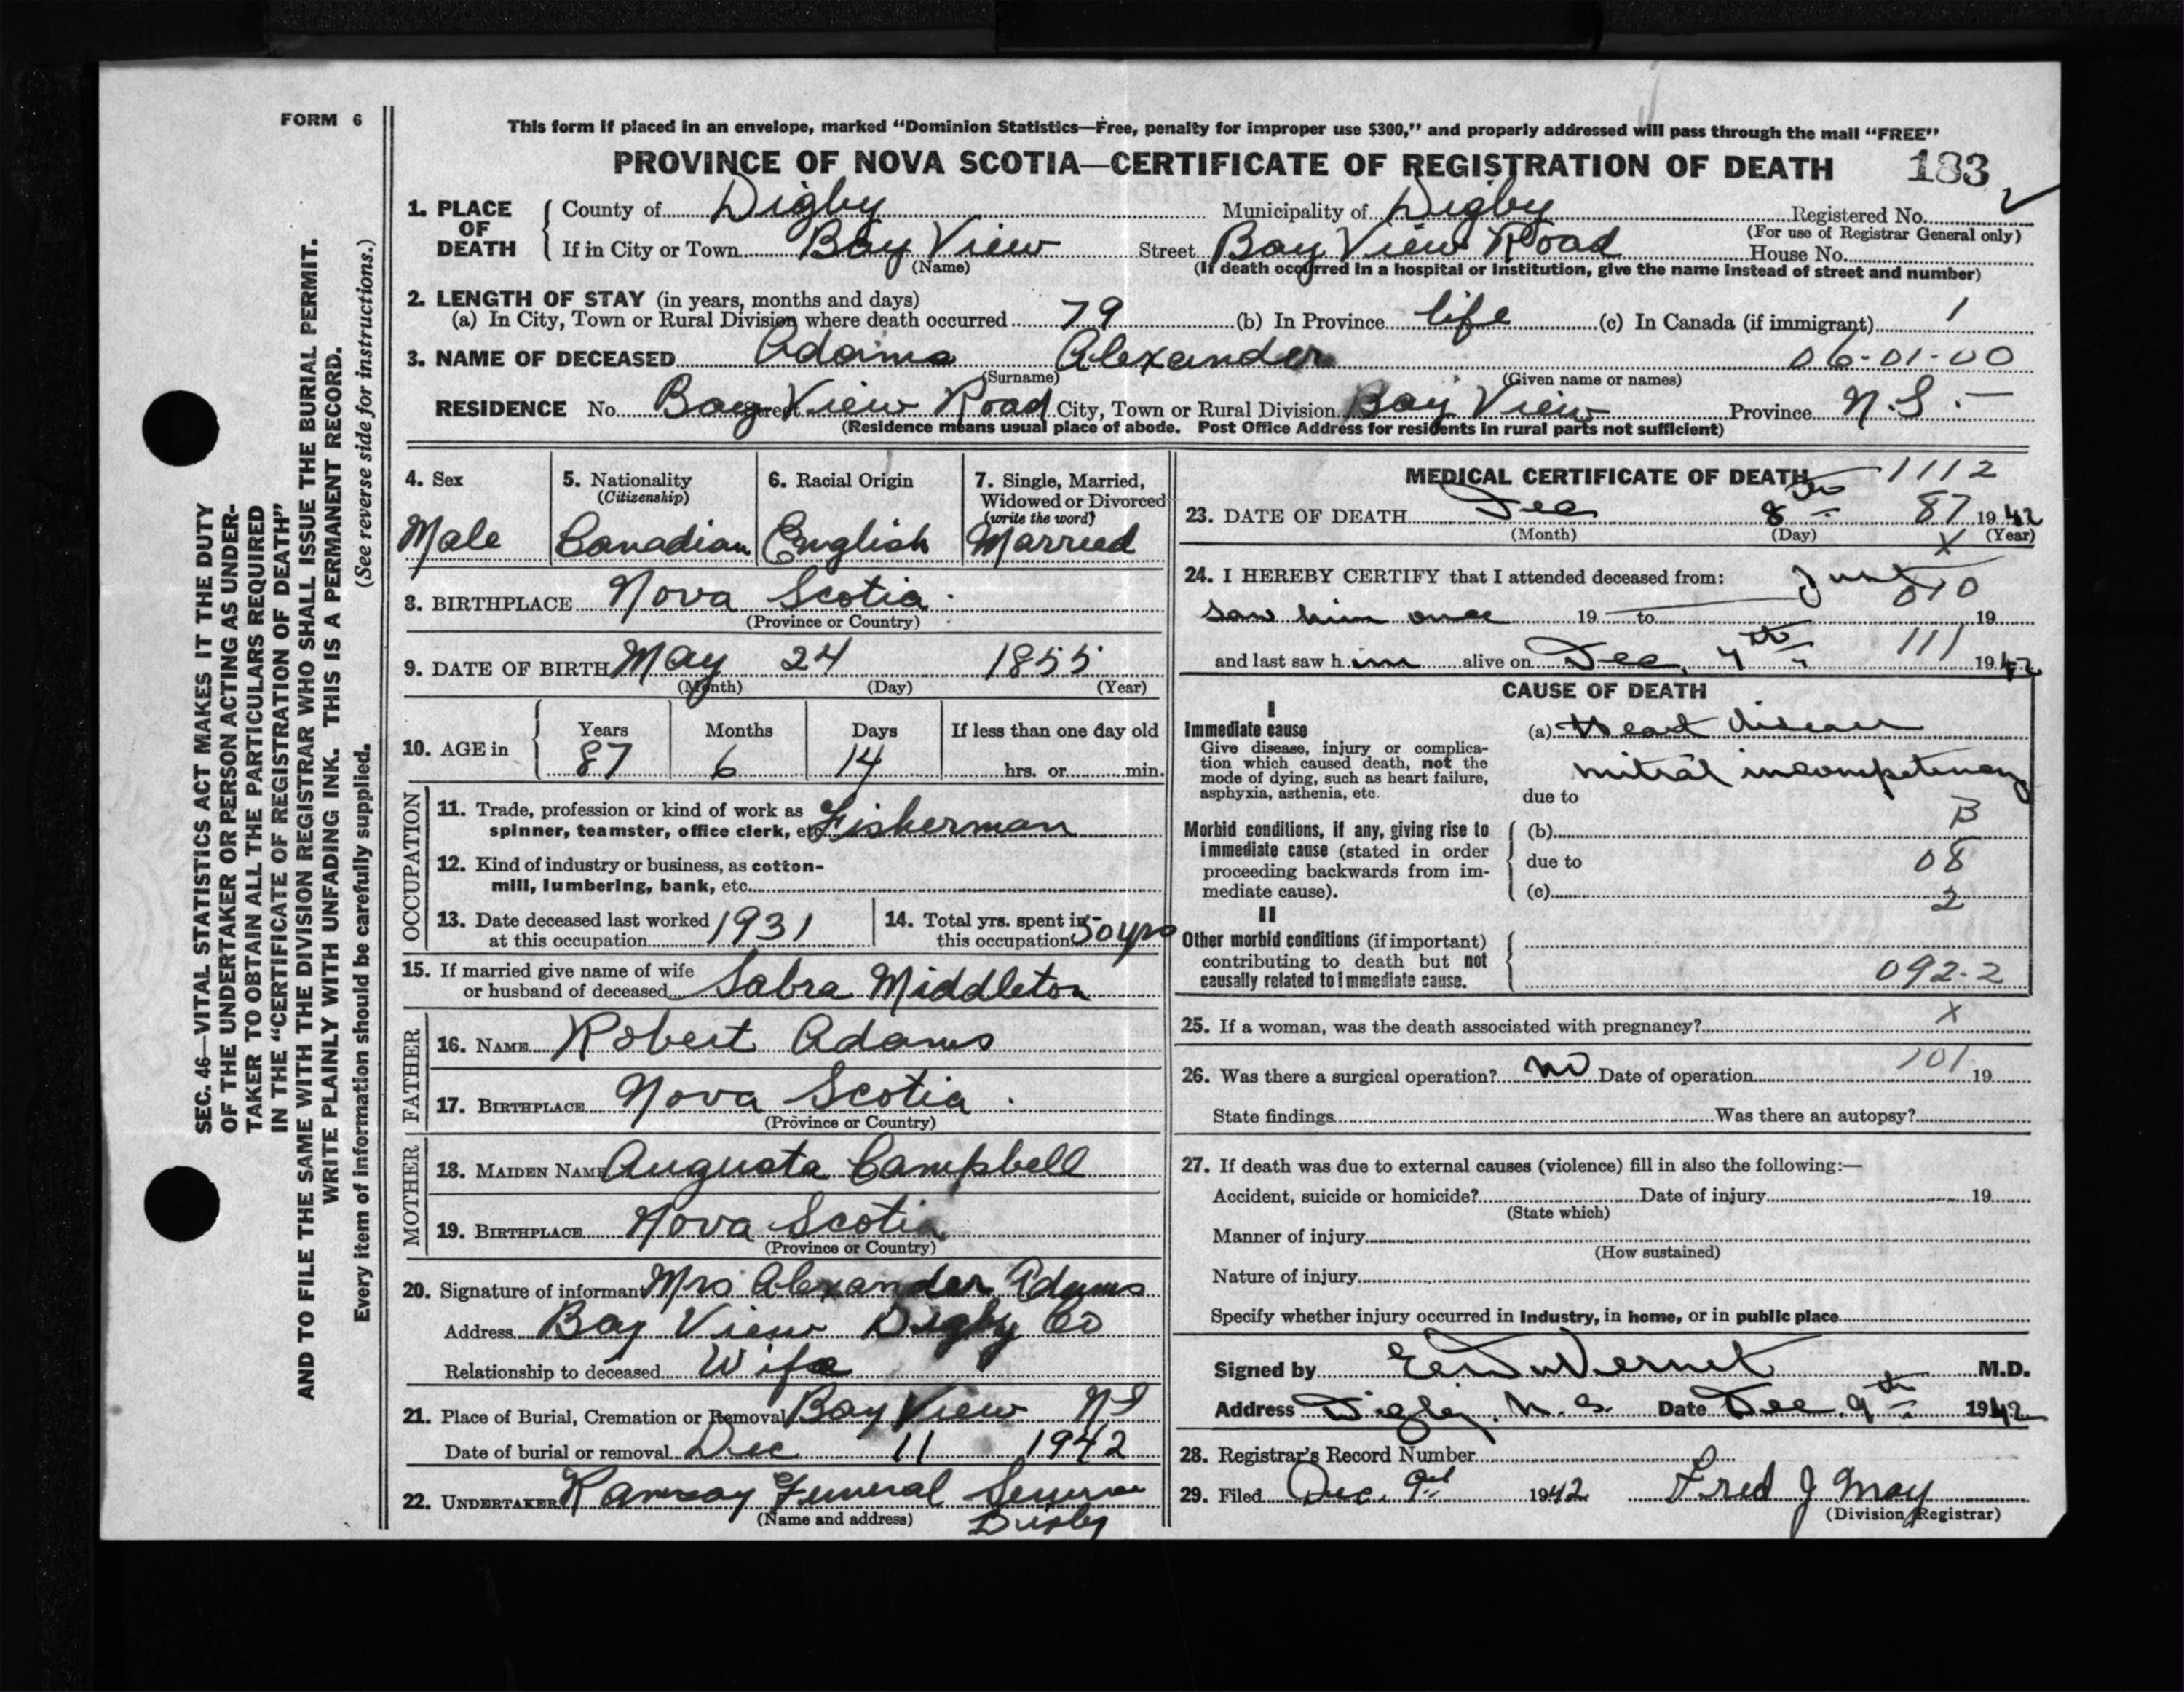 FORM 6
This form if placed in an envelope, marked "Dominion Statistics—Free, penalty for improper use $300," and properly addressed will pass through the mail "FREE"
PROVINCE OF NOVA SCOTIA—CERTIFICATE OF REGISTRATION OF DEATH 183
SEC. 46—VITAL STATISTICS ACT MAKES IT THE DUTY
OF THE UNDERTAKER OR PERSON ACTING AS UNDER-
TAKER TO OBTAIN ALL THE PARTICULARS REQUIRED
IN THE "CERTIFICATE OF REGISTRATION OF DEATH"
AND TO FILE THE SAME WITH THE DIVISION REGISTRAR WHO SHALL ISSUE THE BURIAL PERMIT.
WRITE PLAINLY WITH UNFADING INK. THIS IS A PERMANENT RECORD.
Every item of information should be carefully supplied. (See reverse side for instructions.)
1. PLACE OF DEATH County of Digby Municipality of Digby Registered No.
(For use of Registrar General only)
If in City or Town Bay View Street Bay View Road House No.
(Name) (If death occurred in a hospital or institution, give the name instead of street and number)
2. LENGTH OF STAY (in years, months and days)
(a) In City, Town or Rural Division where death occurred 79 (b) In Province life (c) In Canada (if immigrant) 1
3. NAME OF DECEASED Adams Alexander 06-01-00
(Surname) (Given name or names)
RESIDENCE No. Bay View Road Street City, Town or Rural Division Bay View Province N.S.
(Residence means usual place of abode. Post Office Address for residents in rural parts not sufficient)
4. Sex
Male
5. Nationality
(Citizenship)
Canadian
6. Racial Origin
English
7. Single, Married,
Widowed or Divorced
(write the word)
Married
8. BIRTHPLACE Nova Scotia
(Province or Country)
9. DATE OF BIRTH May 24 1855
(Month) (Day) (Year)
10. AGE in Years Months Days If less than one day old
87 6 14 hrs. or min.
OCCUPATION
11. Trade, profession or kind of work as
spinner, teamster, office clerk, etc. Fisherman
12. Kind of industry or business, as cotton-
mill, lumbering, bank, etc.
13. Date deceased last worked
at this occupation 1931
14. Total yrs. spent in
this occupation 50 yrs
15. If married give name of wife
or husband of deceased Sabra Middleton
FATHER
16. NAME Robert Adams
17. BIRTHPLACE Nova Scotia
(Province or Country)
MOTHER
18. MAIDEN NAME Augusta Campbell
19. BIRTHPLACE Nova Scotia
(Province or Country)
20. Signature of informant Mrs Alexander Adams
Address Bay View Digby Co
Relationship to deceased Wife
21. Place of Burial, Cremation or Removal Bay View NS
Date of burial or removal Dec 11 1942
22. UNDERTAKER Ramsay Funeral
(Name and address) Digby
MEDICAL CERTIFICATE OF DEATH 1112
23. DATE OF DEATH Dec 8th 87 1942
(Month) (Day) (Year)
X
24. I HEREBY CERTIFY that I attended deceased from: Just
010
saw him once 19 to 19
111
and last saw him alive on Dec. 7th 1942
CAUSE OF DEATH
I
Immediate cause
Give disease, injury or complica-
tion which caused death, not the
mode of dying, such as heart failure,
asphyxia, asthenia, etc.
(a) Heart disease
mitral incompetency
due to
Morbid conditions, if any, giving rise to
immediate cause (stated in order
proceeding backwards from im-
mediate cause).
(b) B
due to 08
(c) 2
II
Other morbid conditions (if important)
contributing to death but not
causally related to immediate cause.
092-2
25. If a woman, was the death associated with pregnancy? X
26. Was there a surgical operation? no Date of operation 101 19
State findings Was there an autopsy?
27. If death was due to external causes (violence) fill in also the following:—
Accident, suicide or homicide? Date of injury 19
(State which)
Manner of injury
(How sustained)
Nature of injury
Specify whether injury occurred in Industry, in home, or in public place
Signed by DuVernet M.D.
Address Digby, N.S. Date Dec. 9th 1942
28. Registrar's Record Number
29. Filed Dec. 9th 1942 Fred J May
(Division Registrar)